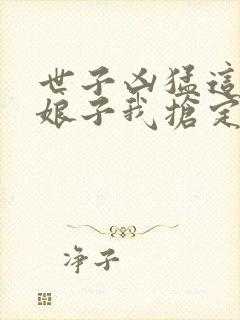 世子凶猛這
娘子我搶定
净子